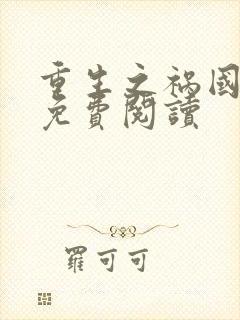 重生之禍國
免費閱讀
羅可可